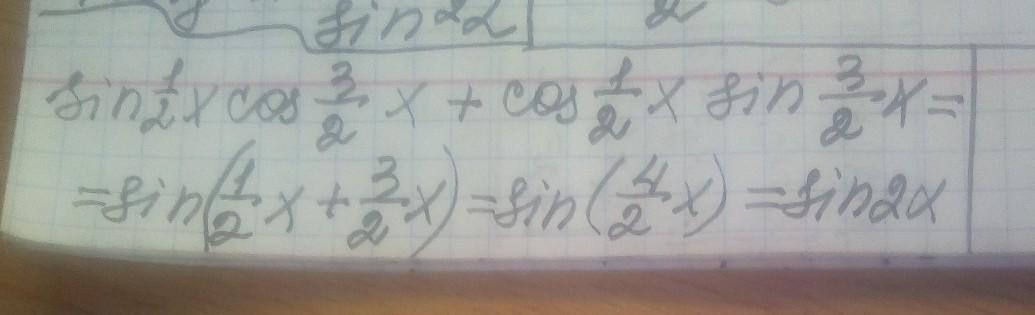 sin²2α 2
sin 1/2 x cos 3/2 x + cos 1/2 x sin 3/2 x =
= sin(1/2 x + 3/2 x) = sin(4/2 x) = sin2α